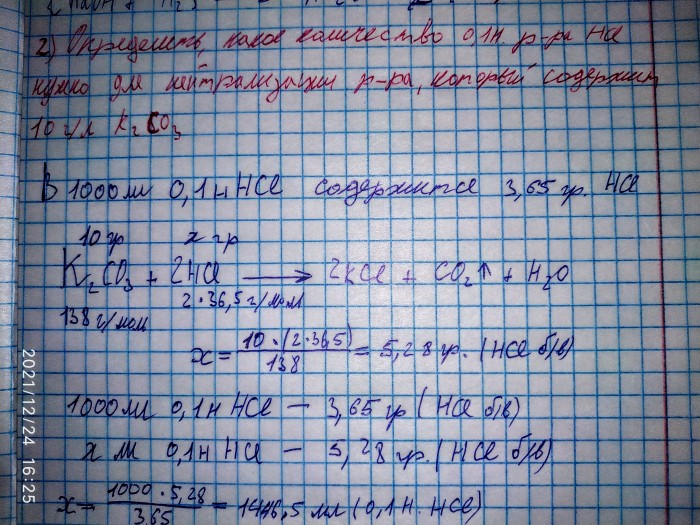 NaOH + H₂S
2) Определить, какое количество 0,1н. р-ра HCl
нужно для нейтрализации р-ра, который содержит
10 г/л K₂CO₃
В 1000 мл 0,1н HCl содержится 3,65 гр. HCl
10 гр x гр
K₂CO₃ + 2HCl → 2KCl + CO₂↑ + H₂O
138 г/мол 2·36,5 г/мол
x = 10·(2·36,5) / 138 = 5,28 гр. (HCl б/в)
1000 мл 0,1н HCl — 3,65 гр (HCl б/в)
x мл 0,1н HCl — 5,28 гр. (HCl б/в)
x = 1000·5,28 / 3,65 = 1446,5 мл (0,1н. HCl)
2021/12/24 16:25